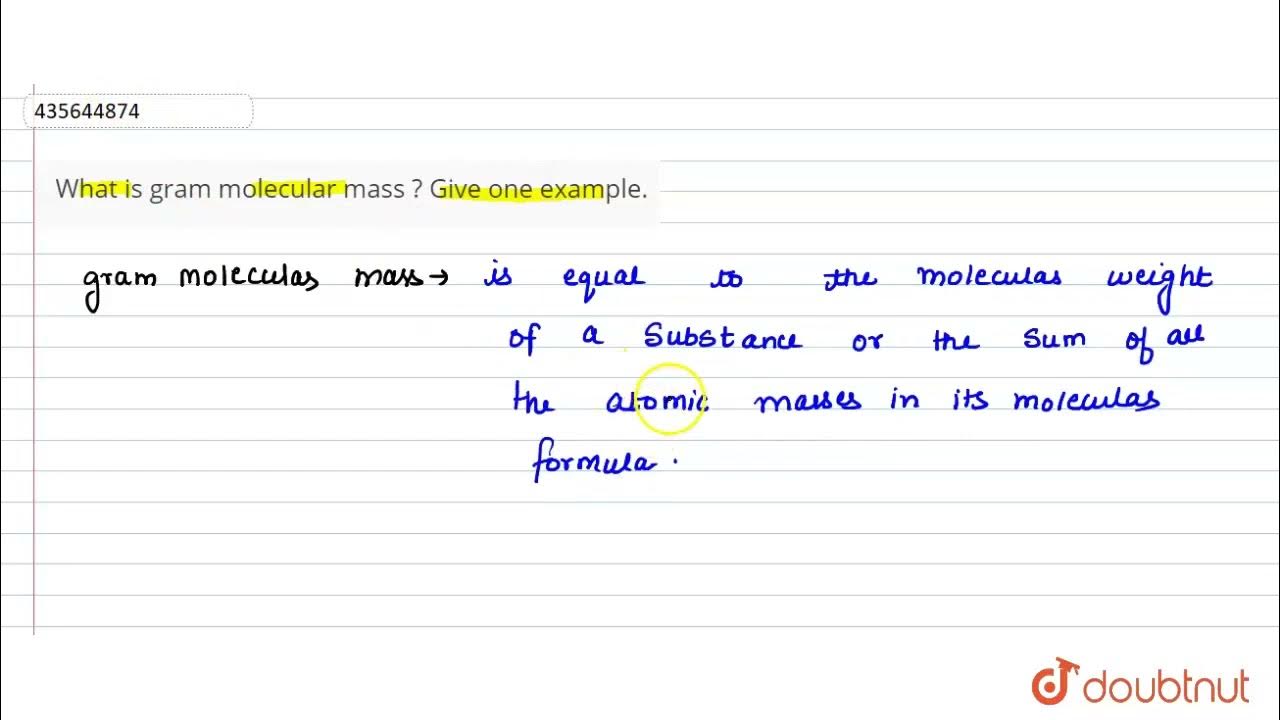 435644874
What is gram molecular mass ? Give one example.
gram molecular mass → is equal to the molecular weight
of a substance or the sum of all
the atomic masses in its molecular
formula.
doubtnut